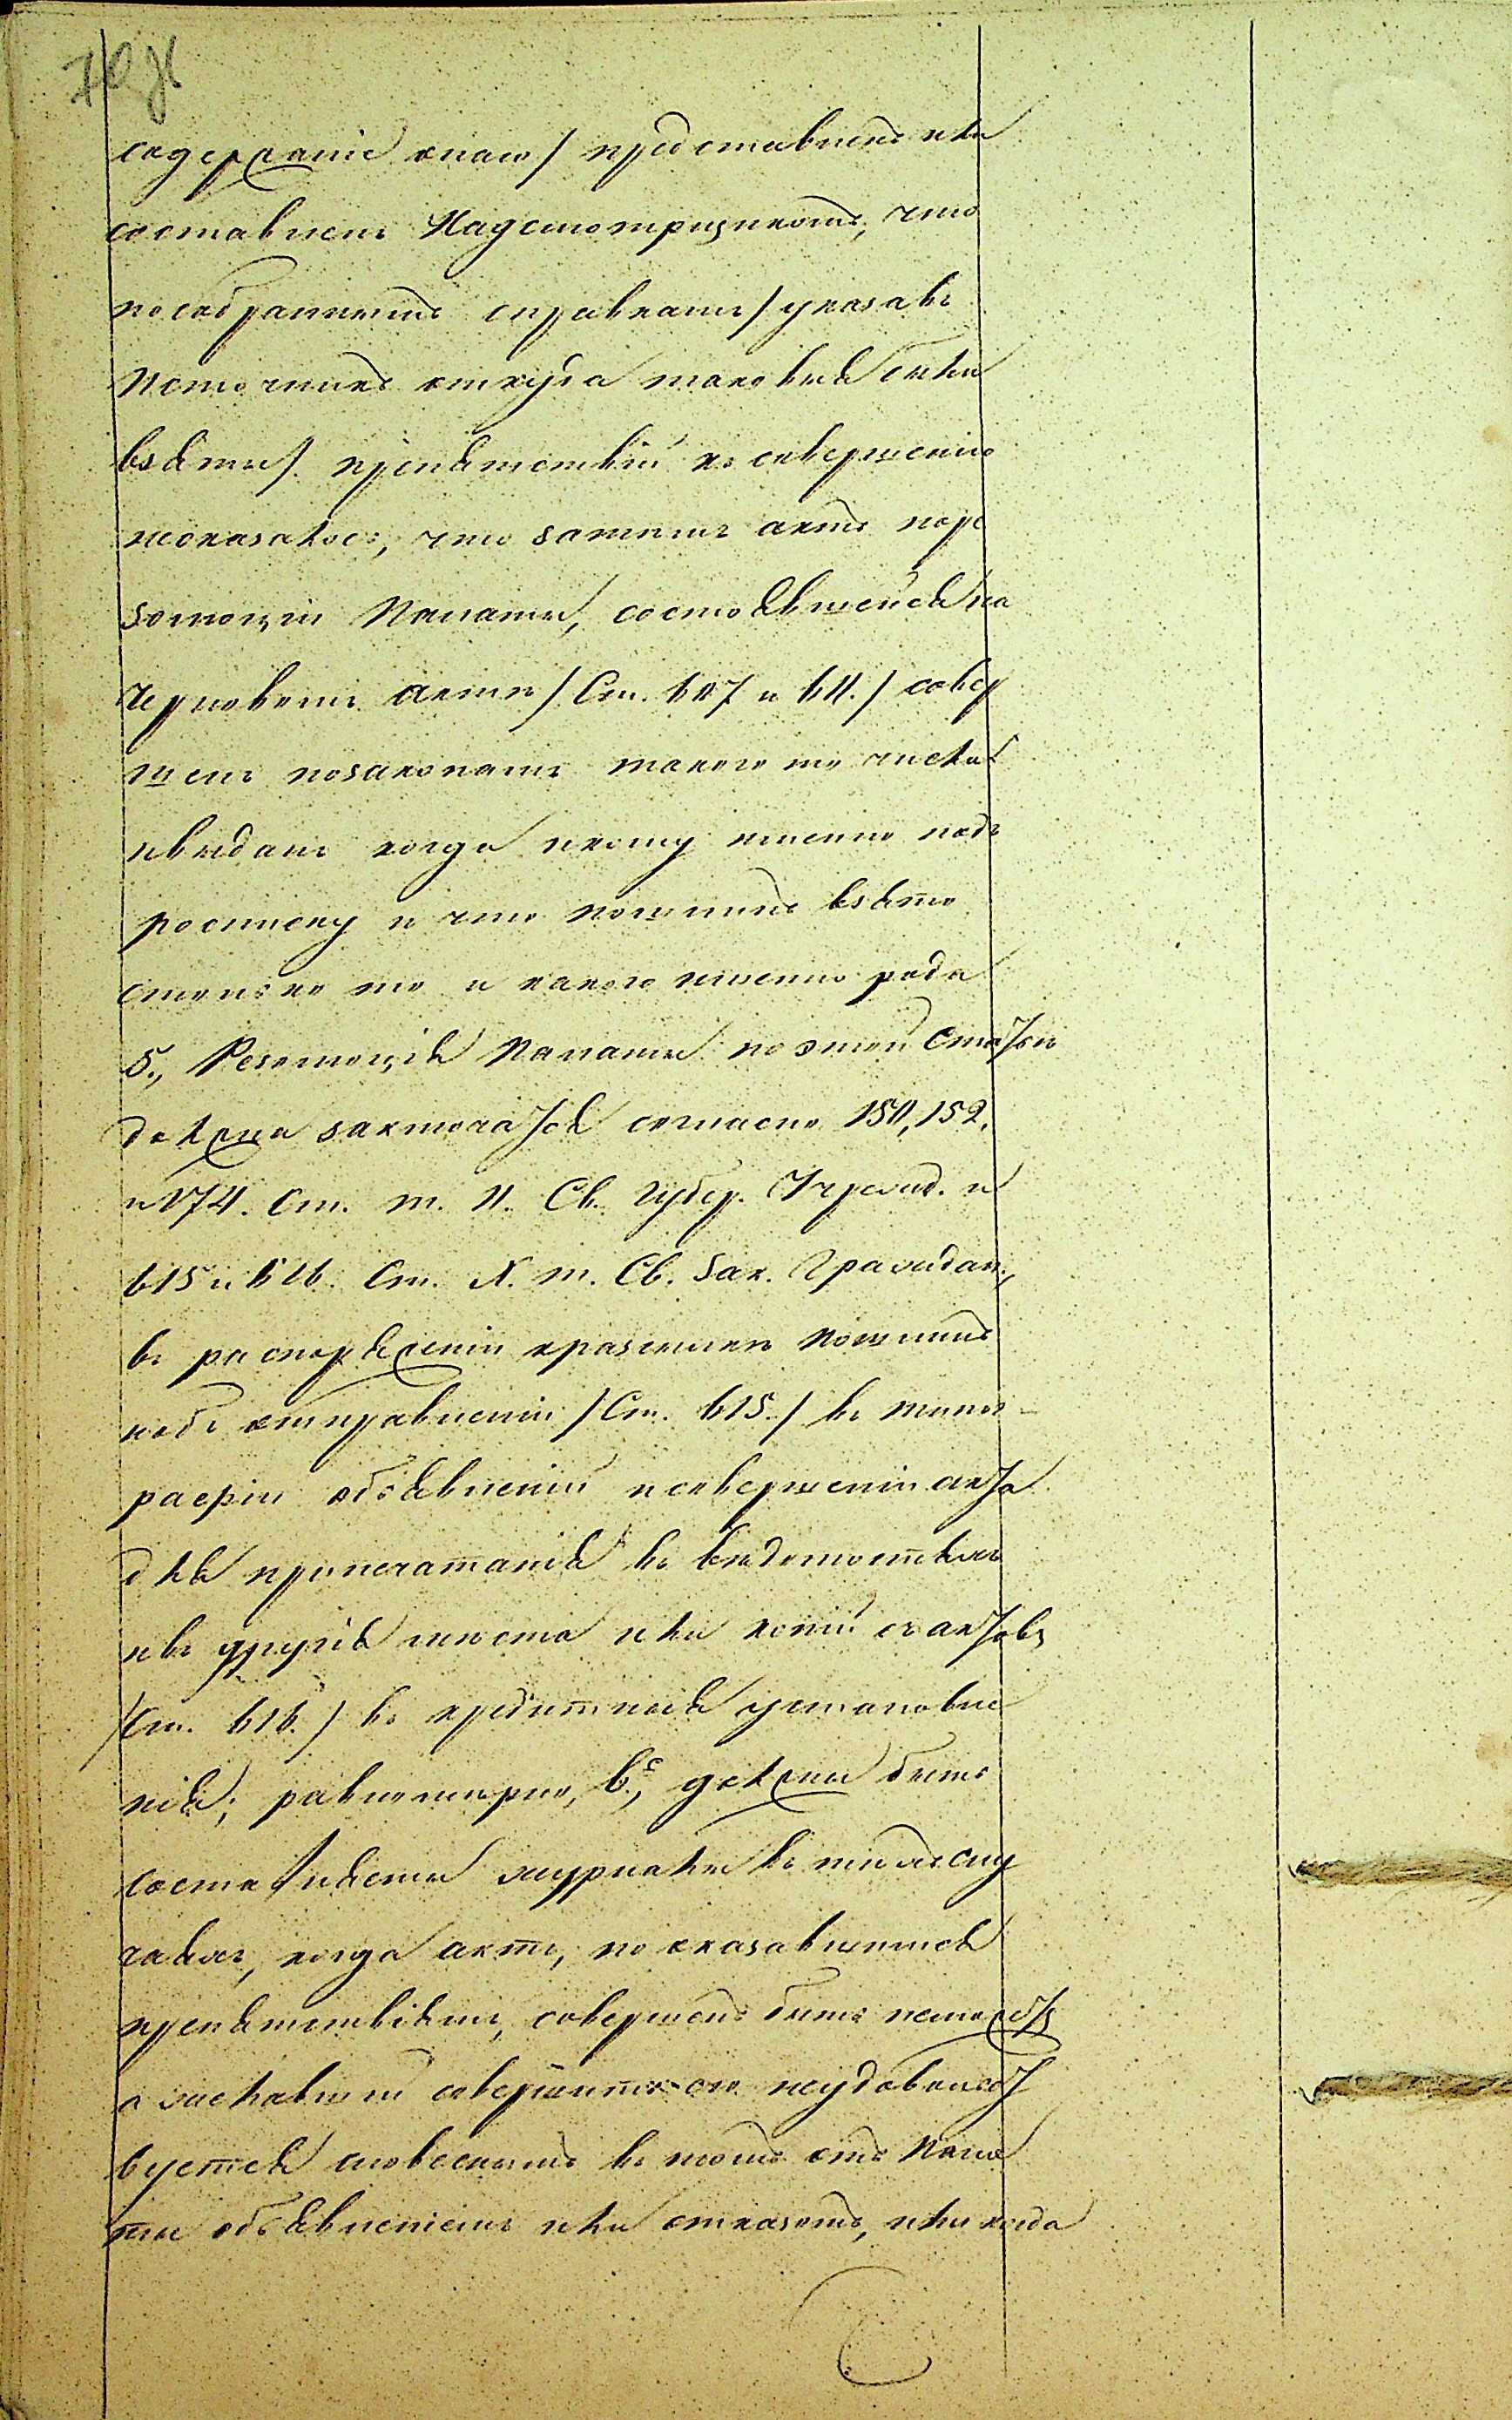 содержаніе онаго/ представленъ или
составленъ Надсмотрщикомъ, что
пособраннымъ справкамъ/указавъ
источникъ откуда таковыя были
взяты/. препятствій къ совершенію
неоказалось, что затемъ актъ поре
золюціи Палаты, состоявшейся на
черновомъ актѣ/Ст. 607 и 611./ совер
шенъ позаконамъ такого то числа
ивыданъ когда икому именно подъ
росписку и что пошлинъ взято
столько то и какого именно рода
5., Резолюція Палаты поэтой статьѣ
должна заключаться согласно 150, 152,
и 174. ст. т. II. Св. Губер. Учрежд. и
615 и 616. ст. X. т. Св. Зак. Граждан.,
въ распоряженіи кразсылкѣ пошлинъ
подъ отправленіи /Ст. 615./ въ типог-
рафіи объявленій исовершеніи акта
для припечатанія въ вѣдомостяхъ
ивъ другія мѣста или копій съ актовъ
/Ст. 616./ въ кредитныя установле
нія; равномѣрно, 6е, должны быть
составляемы журналы въ тѣхъ слу
чаяхъ, когда актъ, по оказавшимся
препятствіямъ, совершенъ быть неможетъ
а желавшій совершить его неудовольст
вуется словеснымъ въ томъ отъ Пала
ты объявленіемъ или отказомъ, или когда